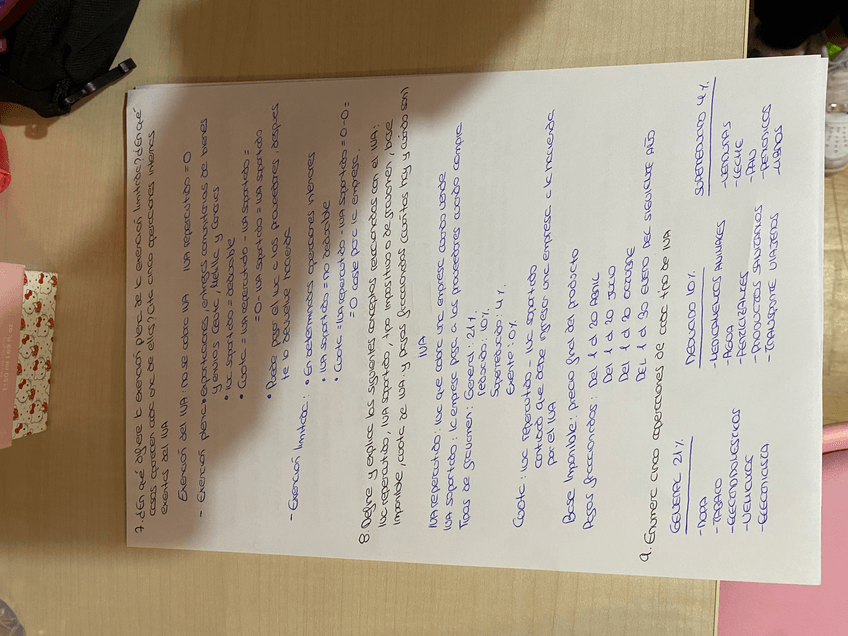 7. ¿En qué difiere la exención plena de la exención limitada? ¿En qué
casos aparecen cada una de ellas? Cite cinco operaciones interiores
exentas del IVA
Exención del IVA no se cobra IVA IVA repercutido = 0
- Exención plena: exportaciones, entregas comunitarias de bienes
y envíos Ceuta, Melilla y Canarias
• IVA soportado = deducible
• Cuota = IVA repercutido - IVA soportado =
= 0 - IVA soportado = IVA soportado
• Puede pagar el iva a los proveedores, después
te lo devuelve hacienda
- Exención limitada: • En determinadas operaciones interiores
• IVA soportado = no deducible
• Cuota = IVA repercutido - IVA soportado = 0 - 0 =
= 0 coste para la empresa.
8. Define y explica los siguientes conceptos relacionados con el IVA:
iva repercutido, IVA soportado, tipo impositivo o de gravamen, base
imponible, cuota de IVA y pagos fraccionados (cuántos hay y cuándo son)
IVA
IVA repercutido: iva que cobra una empresa cuando vende
IVA soportado: la empresa paga a los proveedores cuando compra
Tipos de gravamen: General: 21%
reducido: 10%
Superreducido: 4%
Exento: 0%
Cuota: iva repercutido - iva soportado
cantidad que debe ingresar una empresa a la hacienda
por el IVA
Base Imponible: precio final del producto
Pagos fraccionados: Del 1 al 20 ABRIL
Del 1 al 20 JULIO
Del 1 al 20 OCTUBRE
DEL 1 al 30 ENERO DEL SIGUIENTE AÑO
9. Enumera cinco operaciones de cada tipo de IVA
GENERAL 21% REDUCIDO 10% SUPERREDUCIDO 4%
- ROPA - MEDICAMENTOS ANIMALES - VERDURAS
- TABACO - AGUA - LECHE
- ELECTRODOMÉSTICOS - FERTILIZANTES - PAN
- VEHÍCULOS - PRODUCTOS SANITARIOS - PERIÓDICOS
- ELECTRÓNICA - TRANSPORTE VIAJEROS - LIBROS